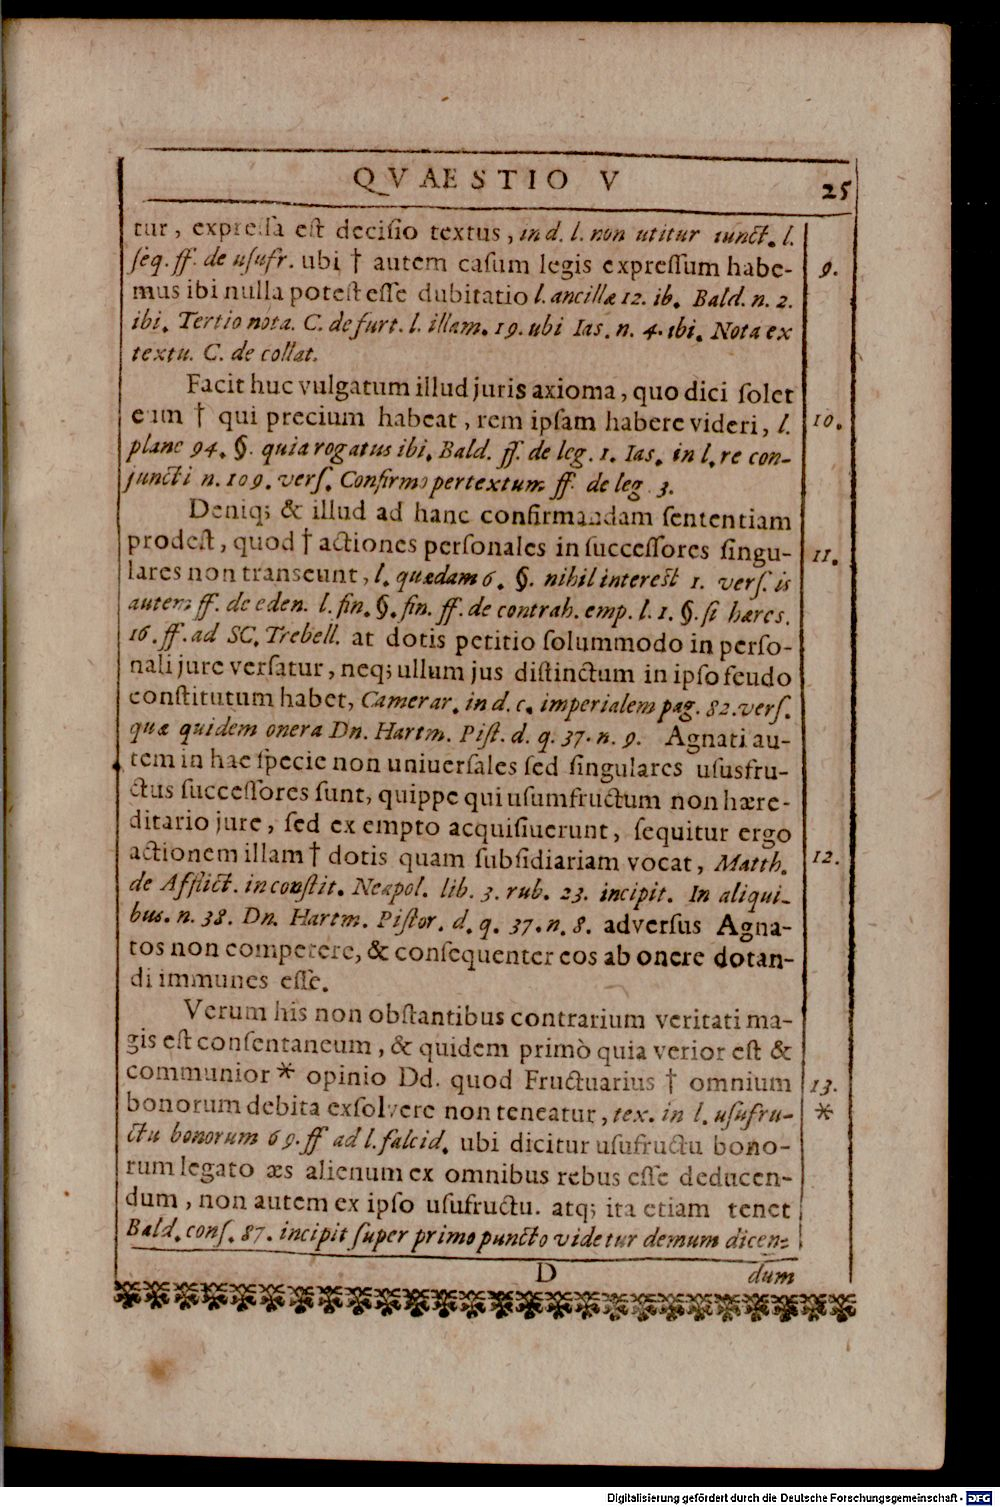 QVAESTIO V
25
tur, expressa est decisio textus, in d. l. non utitur iunct. l.
seq. ff. de usufr. ubi † autem casum legis expressum habe- 9.
mus ibi nulla potest esse dubitatio l. ancillæ 12. ib. Bald. n. 2.
ibi. Tertio nota. C. de furt. l. illam. 19. ubi Ias. n. 4. ibi. Nota ex
textu. C. de collat.
Facit huc vulgatum illud juris axioma, quo dici solet
eum † qui precium habeat, rem ipsam habere videri, l. 10.
plane 94. §. quia rogatus ibi. Bald. ff. de leg. 1. Ias. in l. re con-
juncti n. 109. vers. Confirmo per textum ff. de leg. 3.
Deniq; & illud ad hanc confirmandam sententiam
prodest, quod † actiones personales in successores singu- 11.
lares non transeunt, l. quædam 6. §. nihil interest 1. vers. is
autem ff. de eden. l. fin. §. fin. ff. de contrah. emp. l. 1. §. si hæres.
16. ff. ad SC. Trebell. at dotis petitio solummodo in perso-
nali jure versatur, neq; ullum jus distinctum in ipso feudo
constitutum habet, Camerar. in d. c. imperialem pag. 82. vers.
quæ quidem onera Dn. Hartm. Pist. d. q. 37. n. 9. Agnati au-
tem in hac specie non uniuersales sed singulares ususfru-
ctus successores sunt, quippe qui usumfructum non hære-
ditario jure, sed ex empto acquisiuerunt, sequitur ergo
actionem illam † dotis quam subsidiariam vocat, Matth. 12.
de Afflict. in constit. Neapol. lib. 3. rub. 23. incipit. In aliqui-
bus. n. 38. Dn. Hartm. Pistor. d. q. 37. n. 8. adversus Agna-
tos non competere, & consequenter eos ab onere dotan-
di immunes esse.
Verum his non obstantibus contrarium veritati ma-
gis est consentaneum, & quidem primò quia verior est &
communior * opinio Dd. quod Fructuarius † omnium 13.
bonorum debita exsolvere non teneatur, tex. in l. usufru- *
ctu bonorum 69. ff ad l. falcid. ubi dicitur usufructu bono-
rum legato æs alienum ex omnibus rebus esse deducen-
dum, non autem ex ipso usufructu. atq; ita etiam tenet
Bald. cons. 87. incipit super primo puncto videtur demum dicen-
D dum
Digitalisierung gefördert durch die Deutsche Forschungsgemeinschaft - DFG